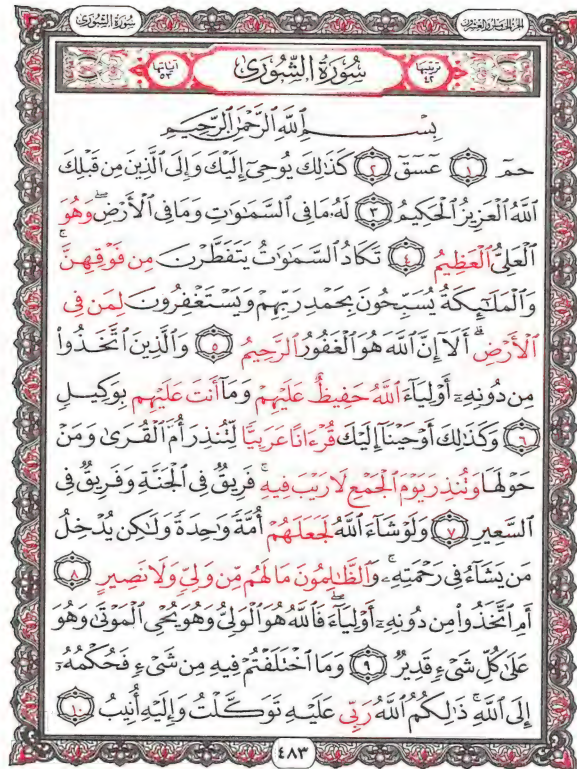 سُورَةُ الشُّورَىٰ
الجزء الخامس والعشرون
سُورَةُ الشُّورَىٰ
ترتيبها ٤٢
آياتها ٥٣
بِسْمِ ٱللَّهِ ٱلرَّحْمَٰنِ ٱلرَّحِيمِ
حمٓ ١ عٓسٓقٓ ٢ كَذَٰلِكَ يُوحِىٓ إِلَيْكَ وَإِلَى ٱلَّذِينَ مِن قَبْلِكَ
ٱللَّهُ ٱلْعَزِيزُ ٱلْحَكِيمُ ٣ لَهُۥ مَا فِى ٱلسَّمَٰوَٰتِ وَمَا فِى ٱلْأَرْضِ ۖ وَهُوَ
ٱلْعَلِىُّ ٱلْعَظِيمُ ٤ تَكَادُ ٱلسَّمَٰوَٰتُ يَتَفَطَّرْنَ مِن فَوْقِهِنَّ ۚ
وَٱلْمَلَٰٓئِكَةُ يُسَبِّحُونَ بِحَمْدِ رَبِّهِمْ وَيَسْتَغْفِرُونَ لِمَن فِى
ٱلْأَرْضِ ۗ أَلَآ إِنَّ ٱللَّهَ هُوَ ٱلْغَفُورُ ٱلرَّحِيمُ ٥ وَٱلَّذِينَ ٱتَّخَذُوا۟
مِن دُونِهِۦٓ أَوْلِيَآءَ ٱللَّهُ حَفِيظٌ عَلَيْهِمْ وَمَآ أَنتَ عَلَيْهِم بِوَكِيلٍ
٦ وَكَذَٰلِكَ أَوْحَيْنَآ إِلَيْكَ قُرْءَانًا عَرَبِيًّا لِّتُنذِرَ أُمَّ ٱلْقُرَىٰ وَمَنْ
حَوْلَهَا وَتُنذِرَ يَوْمَ ٱلْجَمْعِ لَا رَيْبَ فِيهِ ۚ فَرِيقٌ فِى ٱلْجَنَّةِ وَفَرِيقٌ فِى
ٱلسَّعِيرِ ٧ وَلَوْ شَآءَ ٱللَّهُ لَجَعَلَهُمْ أُمَّةً وَٰحِدَةً وَلَٰكِن يُدْخِلُ
مَن يَشَآءُ فِى رَحْمَتِهِۦ ۚ وَٱلظَّٰلِمُونَ مَا لَهُم مِّن وَلِىٍّ وَلَا نَصِيرٍ ٨
أَمِ ٱتَّخَذُوا۟ مِن دُونِهِۦٓ أَوْلِيَآءَ ۖ فَٱللَّهُ هُوَ ٱلْوَلِىُّ وَهُوَ يُحْىِ ٱلْمَوْتَىٰ وَهُوَ
عَلَىٰ كُلِّ شَىْءٍ قَدِيرٌ ٩ وَمَا ٱخْتَلَفْتُمْ فِيهِ مِن شَىْءٍ فَحُكْمُهُۥٓ
إِلَى ٱللَّهِ ۚ ذَٰلِكُمُ ٱللَّهُ رَبِّى عَلَيْهِ تَوَكَّلْتُ وَإِلَيْهِ أُنِيبُ ١٠
٤٨٣